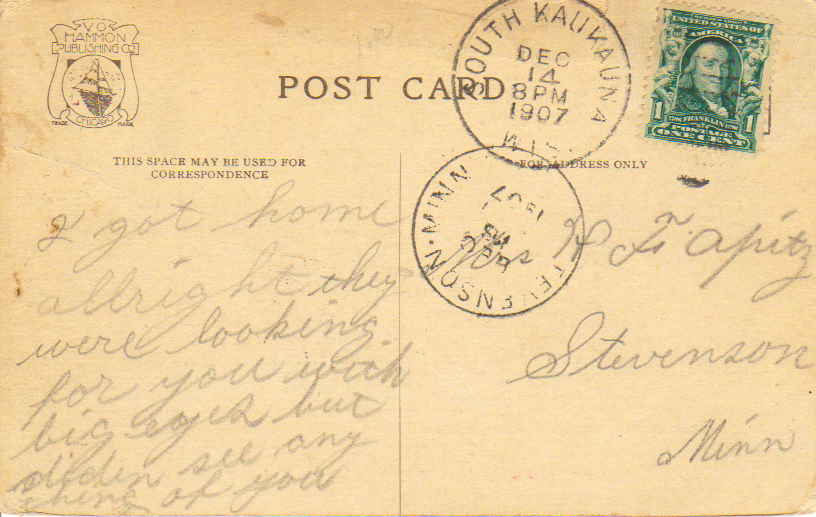 V.O.
HAMMON
PUBLISHING CO.
CHICAGO
TRADE MARK
POST CARD
SOUTH KAUKAUNA
DEC
14
8 PM
1907
WIS.
UNITED STATES OF
AMERICA
1706 FRANKLIN 1790
POSTAGE
1 ONE CENT 1
THIS SPACE MAY BE USED FOR
CORRESPONDENCE
FOR ADDRESS ONLY
STEVENSON. MINN
1907
I got home
allright they
were looking
for you with
big eyes but
diden see any
thing of you
Mrs H F Apitz
Stevenson
Minn